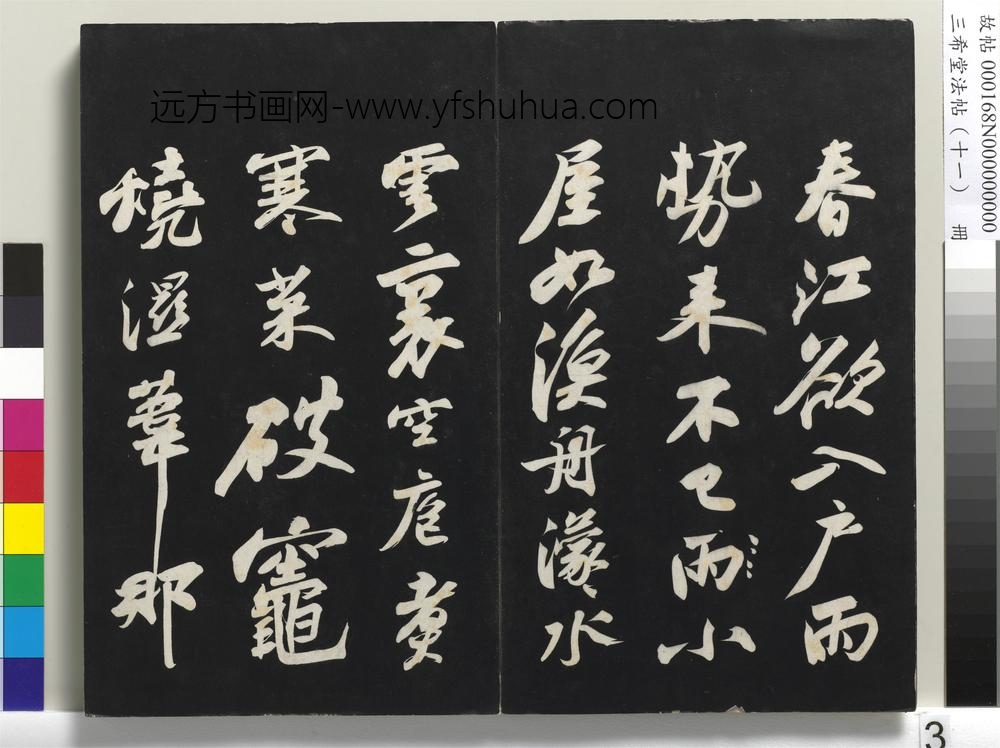 春江欲入户雨
勢来不已雨小
屋如漁舟濛々水
雲裏空庖煑
寒菜破竈
燒濕葦那
远方书画网-www.yfshuhua.com
故帖 000168N000000000
三希堂法帖(十一) 冊
3